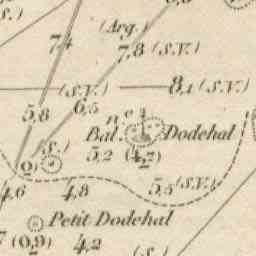 (Arg.)
7,4
7,8 (S.V.)
(S.V.)
8,1 (S.V.)
5,8
6,5
Bal.
Dodehal
(S.)
5,2 (4,7)
4,6
4,8
5,5 (S.V.)
Petit Dodehal
7 (0,9)
4,2
(S.)